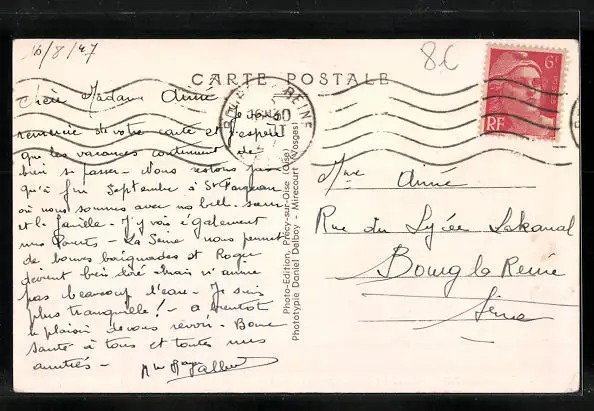 16/8/47
8€
CARTE POSTALE
6F
RF
BOURG LA REINE
16H30
Chère Madame Anné
Je vous
remercie de votre carte et j'espère
que les vacances continuent de
bien se passer - Nous restons
qu'à fin Septembre à St
où nous sommes avec ma belle-sœur
et la famille - J'y vois également
mes - La Seine nous permet
de bonnes baignades et
devient bien doré mais n'aime
pas beaucoup l'eau - Je suis
plus tranquille! - à bientôt
le plaisir de vous revoir - Bonne
santé à tous et toutes mes
amitiés -
Photo-Edition, Précy-sur-Oise (Oise)
Phototypie Daniel Delboy - Mirecourt (Vosges)
Mme Anné
Rue du Lycée Lakanal
Bourg la Reine
Seine